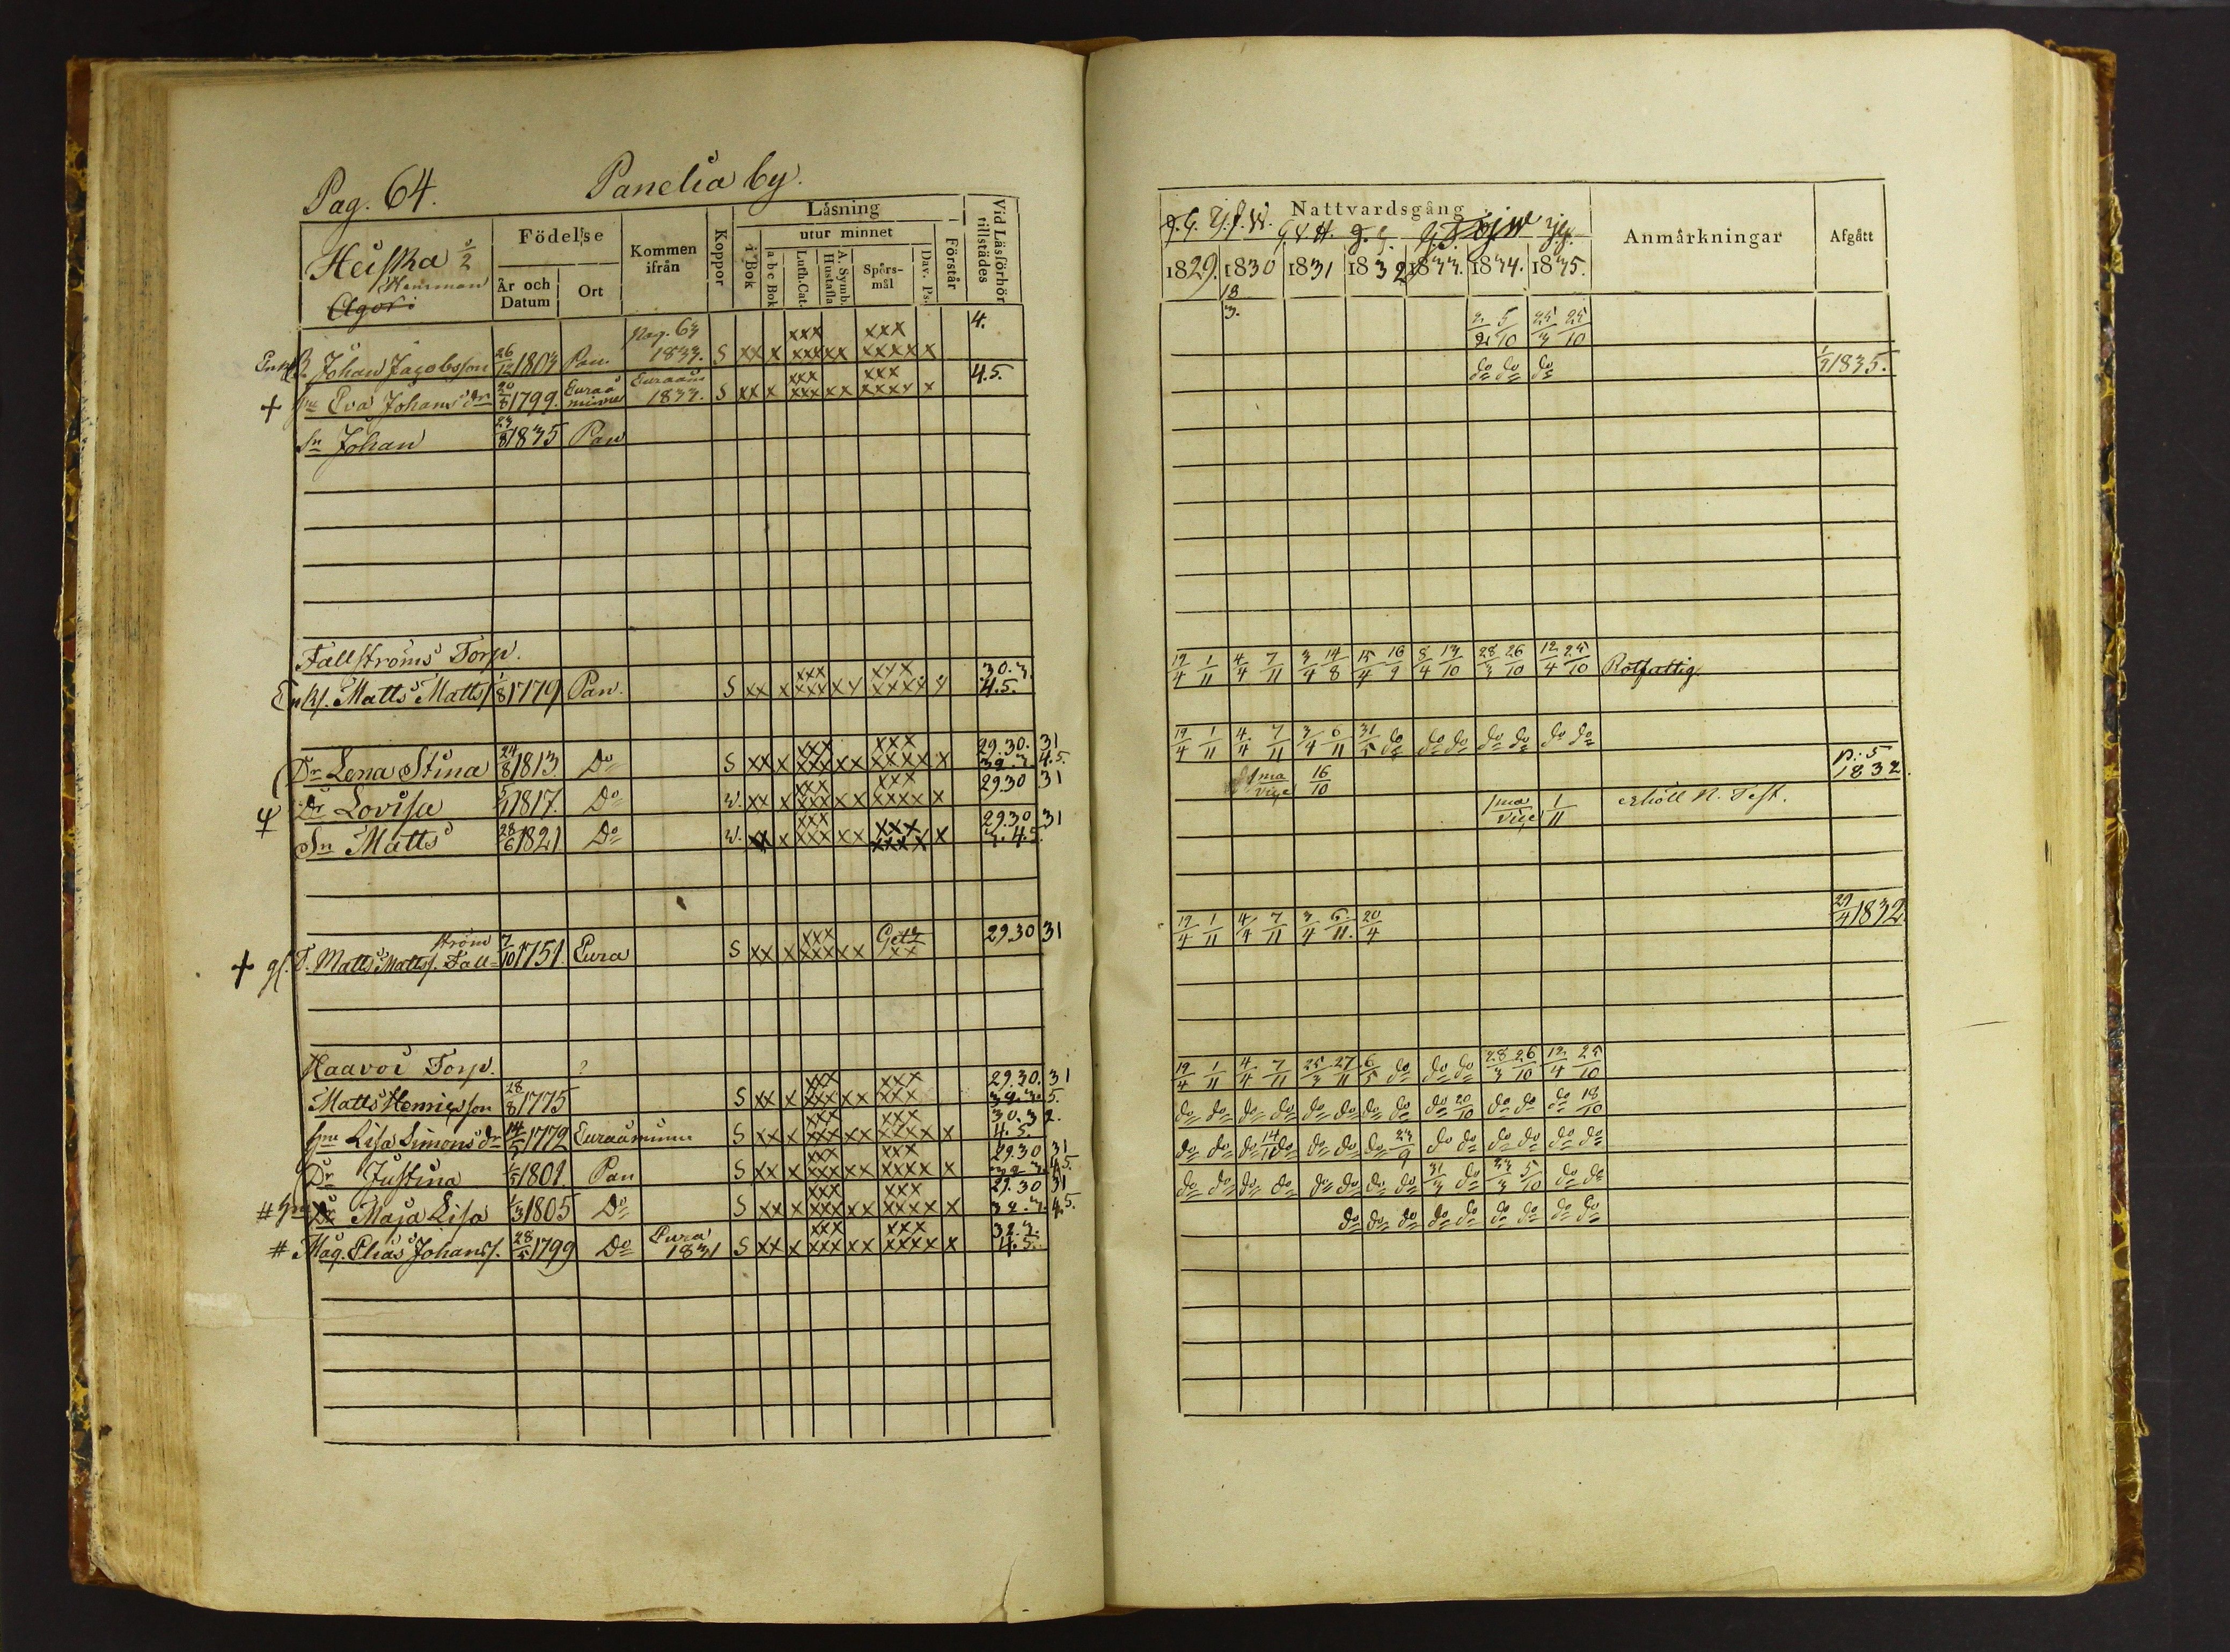 Pag. 64. Panelia by.
Heiskka 1/2
Hemman
Födelse
År och Datum
Ort
Kommen ifrån
Koppor
Läsning
i Bok
utur minnet
a b c Bok
Luth. Cat.
A. Symb. Hustafla
Spörsmål
Dav. Ps.
Förstår
Vid Läsförhör tillstädes
Johan Jacobsson 26/12 1803 Pan. Pag. 63 1833. S xx x xxx xxx xx xxx xxxx x 4.
+ Eva Johans dr 20/8 1799. Euraåminne Euraåm 1833. S xx x xxx xxx xx xxx xxxx x 4.5.
Sn Johan 23/8 1835 Pan
Fallströms Torp.
Enkl. Matts Mattss 1/8 1779 Pan. S xx x xxx xxx xx xxx xxxx x 30.3 4.5.
Dr Lena Stina 24/8 1813. Do S xx x xxx xxx xx xxx xxxx x 29.30. 31 32.3. 4.5.
Dr Lovisa 1817. Do W. xx x xxx xxx xx xxx xxxx x 29.30 31
Sn Matts 28/6 1821 Do W. xx x xxx xxx xx xxx xxxx x 29.30 31 3.4.5.
+ gl. T. Matts Mattss. Fallström 7/10 1751. Eura S xx x xxx xxx xx xx 29.30 31
Haavoi Torp.
Matts Henricsson 28/8 1775 S xx x xxx xxx xx xxx xxx 29.30. 31 32.3. 5.
Lisa Simons dr 14/5 1779 Euraåminne S xx x xxx xxx xx xxx xxxx x 30.32. 4.5.
Dr Justina 1/5 1801. Pan S xx x xxx xxx xx xxx xxxx x 29.30 31 32.3. 4.5.
# Maja Lisa 1/3 1805 Do S xx x xxx xxx xx xxx xxxx x 29.30 31 32.3. 4.5.
# Måg. Elias Johanss. 28/5 1799 Do Eura 1831 S xx x xxx xxx xx xxx xxxx x 32.3. 4.5.
Nattvardsgång
Anmärkningar
Afgått
1829. 1830 1831 1832 1833. 1834. 1835.
5/10 25/3 25/10
do do do 1835.
19/4 1/11 4/4 7/11 3/4 14/8 15/4 16/9 8/4 13/10 28/3 26/10 12/4 25/10 Rotfattig
19/4 1/11 4/4 7/11 3/4 6/11 31/5 do do do do do do do
1ma vice 16/10 p. 5 1832.
1ma vice 1/11 erhöll N. Test.
19/4 1/11 4/4 7/11 3/4 6/11. 20/4 29/4 1832.
19/4 1/11 4/4 7/11 25/3 27/11 6/5 do do do 28/3 26/10 12/4 25/10
do do do do do do do do do 20/10 do do do 18/10
do do do 14/11 do do do do 23/9 do do do do do do
do do do do do do do do 31/3 do 5/10 do do
do do do do do do do do do